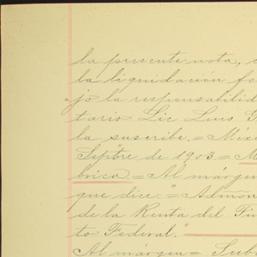 la presente nota,
la liquidación
jo la responsabilid
tario Lic Luis G
la suscribe.= Méxi
Septbre de 1903.= M
brica.= Al márgen
que dice: "= Admón
de la Renta del Tim
to Federal."
Al márgen = Sub